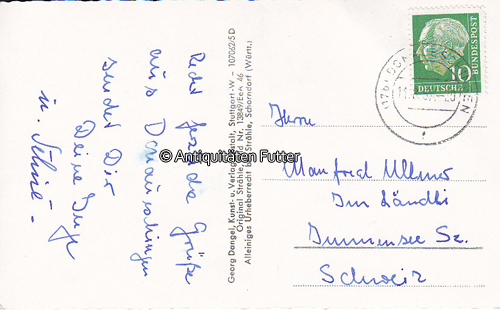 Recht frohe Grüße
aus Donaueschingen
sendet Dir
Deine Inge
u.
Georg Dengel, Kunst- u. Verlagsanstalt, Stuttgart-W — 107062/5 D
Original Strähle Bild Nr. 13849/Een 46
Alleiniges Urheberrecht bei Strähle, Schorndorf (Württ.)
© Antiquitäten Futter
10
DEUTSCHE
BUNDESPOST
Herrn
Manfred Ullmer
Im Ländli
Immensee Sz.
Schweiz